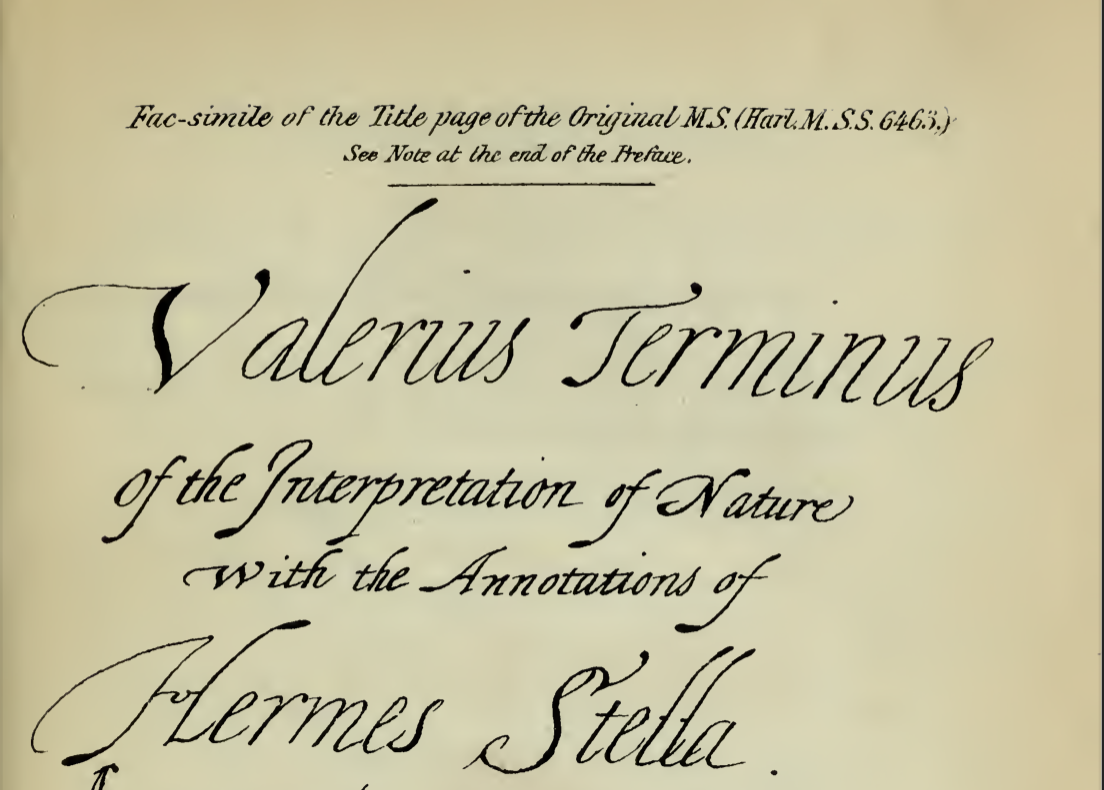 Fac-simile of the Title page of the Original M.S. (Harl. M. S.S. 6463.)
See Note at the end of the Preface.
Valerius Terminus
of the Interpretation of Nature
with the Annotations of
Hermes Stella.